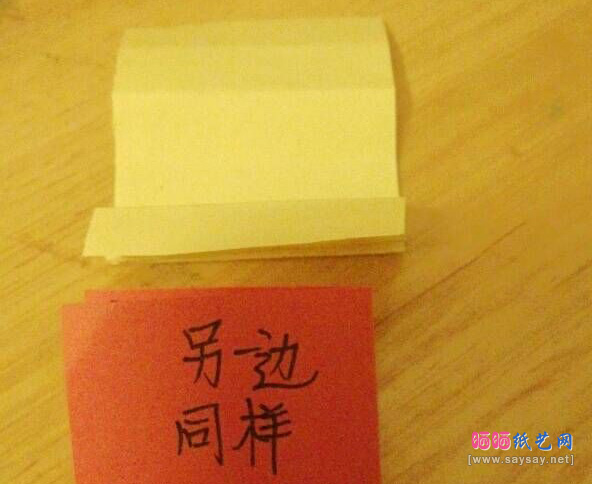 另一边
同样
晒晒纸艺网
[www.saysay.net]